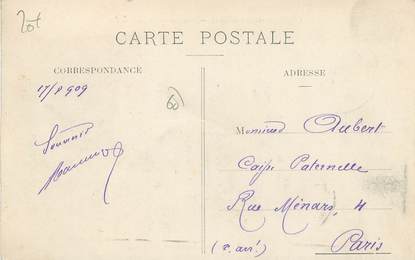 CARTE POSTALE
CORRESPONDANCE
17/8 909
Souvenir
ADRESSE
Monsieur Aubert
Caisse Paternelle
Rue Ménars, 4
(2 arrt)
Paris